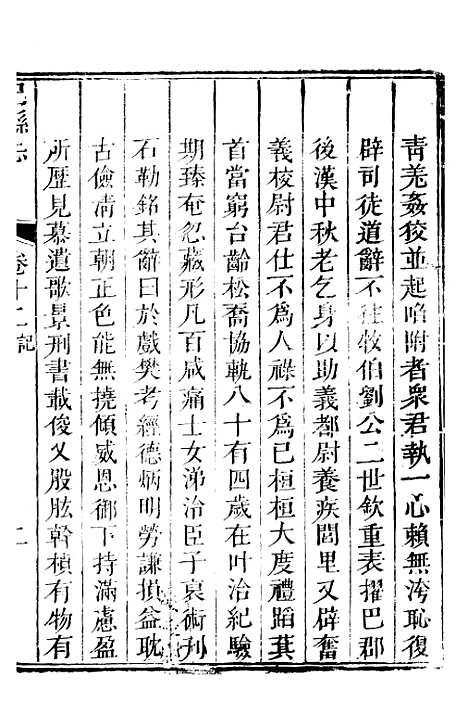 青羌姦狡並起陷附者衆君執一心賴無洿恥復
辟司徒道辭不往牧伯劉公二世欽重表擢巴郡
後漢中秋老乞身以助義都尉養疾閭里又辟奮
義校尉君仕不爲人祿不爲己桓桓大度禮蹈萁
首當窮台齡松喬協軌八十有四歲在叶洽紀驗
期臻奄忽藏形凡百咸痛士女涕泠臣子哀術刋
石勒銘其辭曰於戲樊考經德炳明勞謙損益耽
古儉淸立朝正色能無撓傾威恩御下持滿慮盈
所歷見慕遺歌景刑書載俊乂股肱幹楨有物有
縣志
卷十二記
二